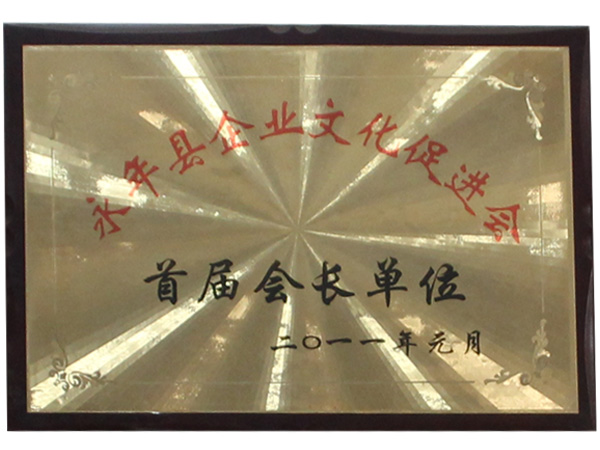 永年县企业文化促进会
首届会长单位
二〇一一年元月